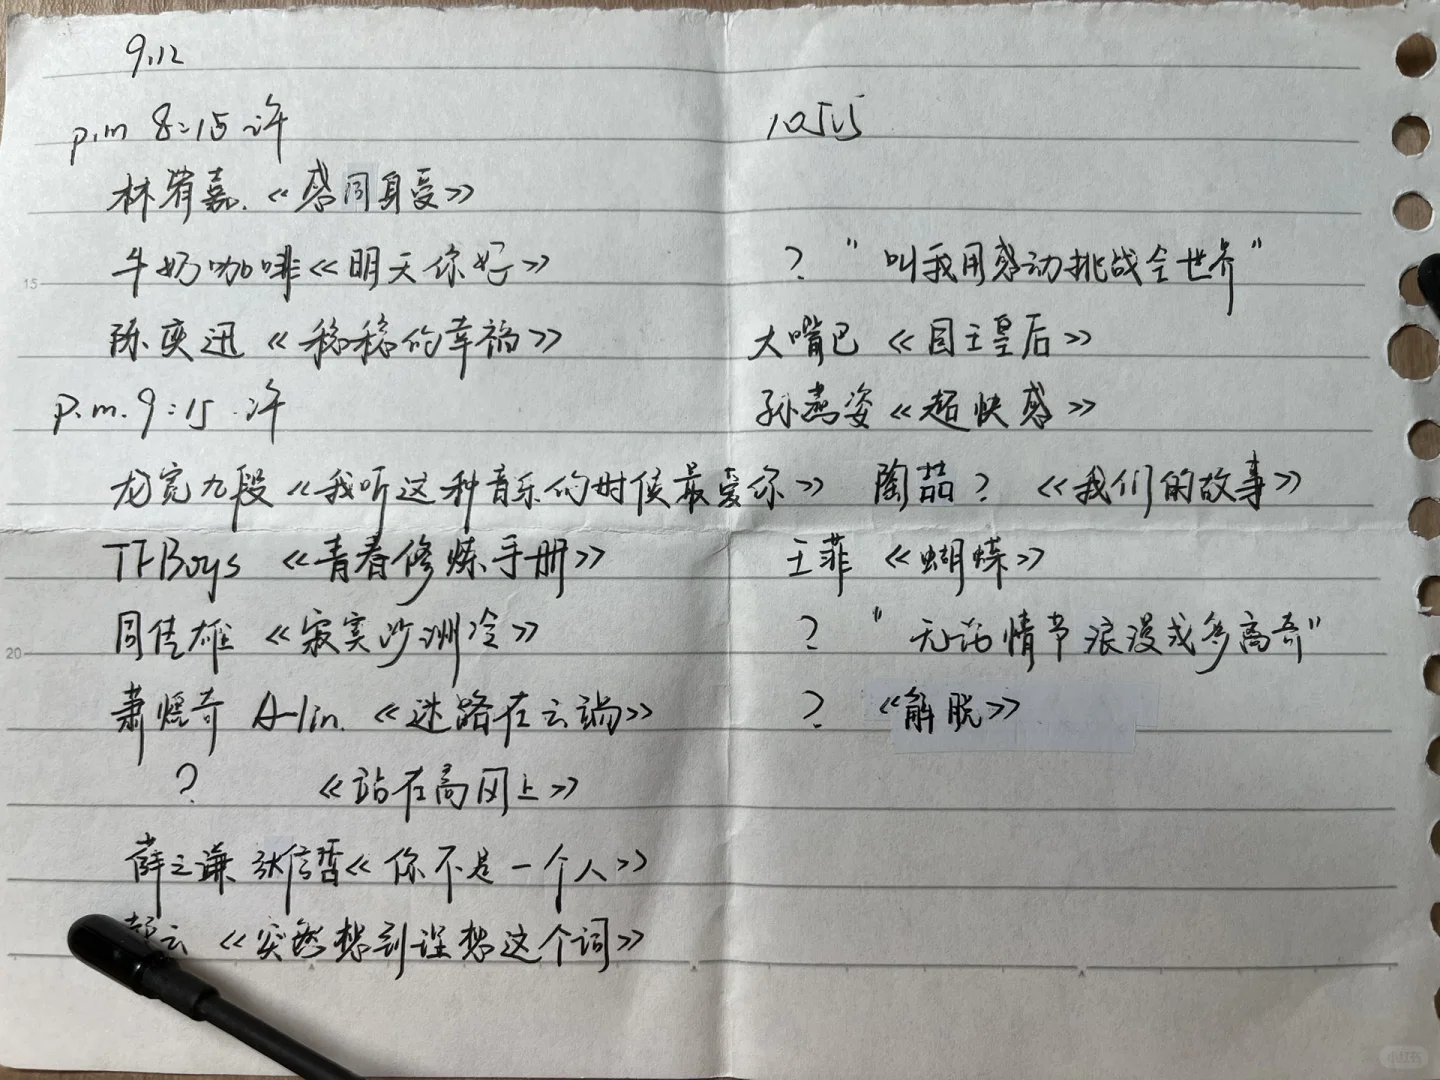 9.12
p.m 8:15 许
林宥嘉.《感同身受》
牛奶咖啡《明天你好》
陈奕迅《稳稳的幸福》
p.m.9:15.许
龙宽九段《我听这种音乐的时候最爱你》
TFBoys《青春修炼手册》
周传雄《寂寞沙洲冷》
萧煌奇 A-lin.《迷路在云端》
?《站在高冈上》
薛之谦 张信哲《你不是一个人》
云《突然想到理想这个词》
?"叫我用感动挑战全世界"
大嘴巴《国王皇后》
孙燕姿《超快感》
陶喆?《我们的故事》
王菲《蝴蝶》
?"无论情节浪漫或多离奇"
?《解脱》
15
20
小红书